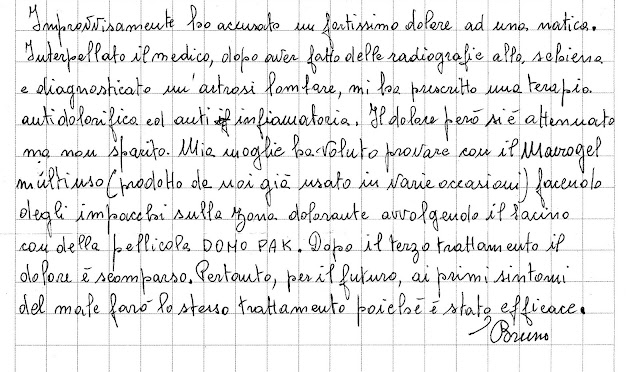 Improvvisamente ho accusato un fortissimo dolore ad una natica.
Interpellato il medico, dopo aver fatto delle radiografie alla schiena
e diagnosticato un'artrosi lombare, mi ha prescritto una terapia
antidolorifica ed anti infiamatoria. Il dolore però si è attenuato
ma non sparito. Mia moglie ha voluto provare con il
multiuso (prodotto da noi già usato in varie occasioni) facendo
degli impacchi sulla zona dolorante avvolgendo il bacino
con della pellicola DOMO PAK. Dopo il terzo trattamento il
dolore è scomparso. Pertanto, per il futuro, ai primi sintomi
del male farò lo stesso trattamento poichè è stato efficace.
Bruno